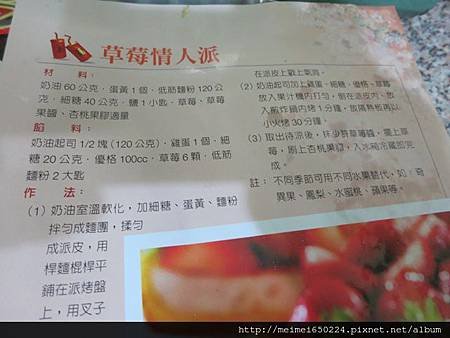 草莓情人派
材 料：
奶油60公克、蛋黃1個、低筋麵粉120公
克、細糖40公克、鹽1小匙、草莓、草莓
果醬、杏桃果膠適量
餡 料：
奶油起司1/2塊(120公克)、雞蛋1個、細
糖20公克、優格100cc、草莓6顆、低筋
麵粉2大匙
作 法：
(1) 奶油室溫軟化，加細糖、蛋黃、麵粉
拌勻成麵團，揉勻
成派皮，用
桿麵棍桿平
鋪在派烤盤
上，用叉子
在派皮上戳上氣孔。
(2) 奶油起司加上雞蛋、細糖、優格、草莓
放入果汁機內打勻，倒在派皮內，放
入煎炸鍋內烤1分鐘，放隔熱板再以
小火烤30分鐘。
(3) 取出待涼後，抹少許草莓醬，擺上草
莓，刷上杏桃果膠，入冰箱冷藏即完
成。
註： 不同季節可用不同水果替代，如：奇
異果、鳳梨、水蜜桃、蘋果等。
http://meimei650224.pixnet.net/album